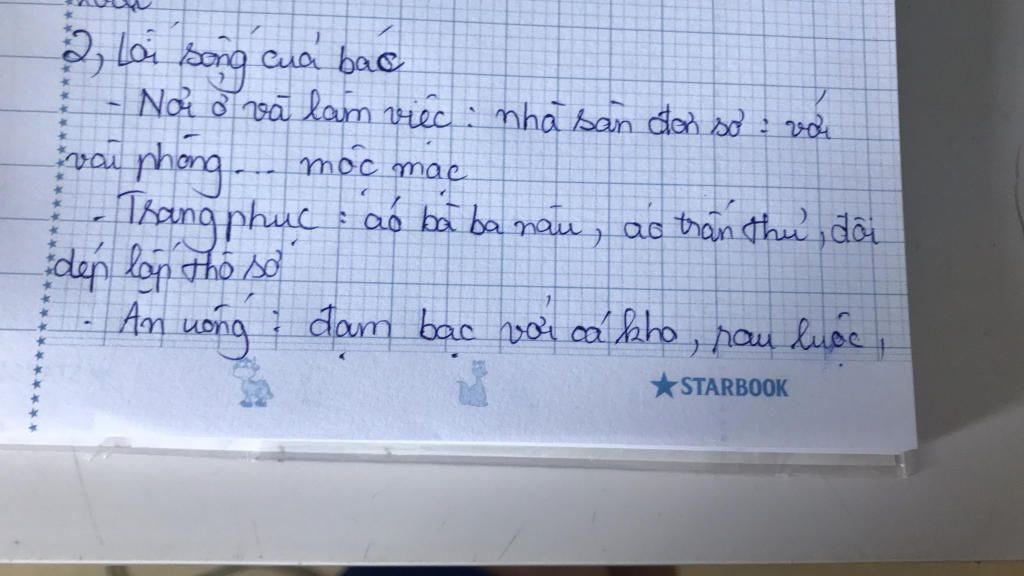 2, Lối sống của bác
- Nơi ở và làm việc : nhà sàn đơn sơ : với
vài phòng... mộc mạc
- Trang phục : áo bà ba nâu, áo trấn thủ, đôi
dép lốp thô sơ
- Ăn uống : đạm bạc với cá kho, rau luộc,
STARBOOK